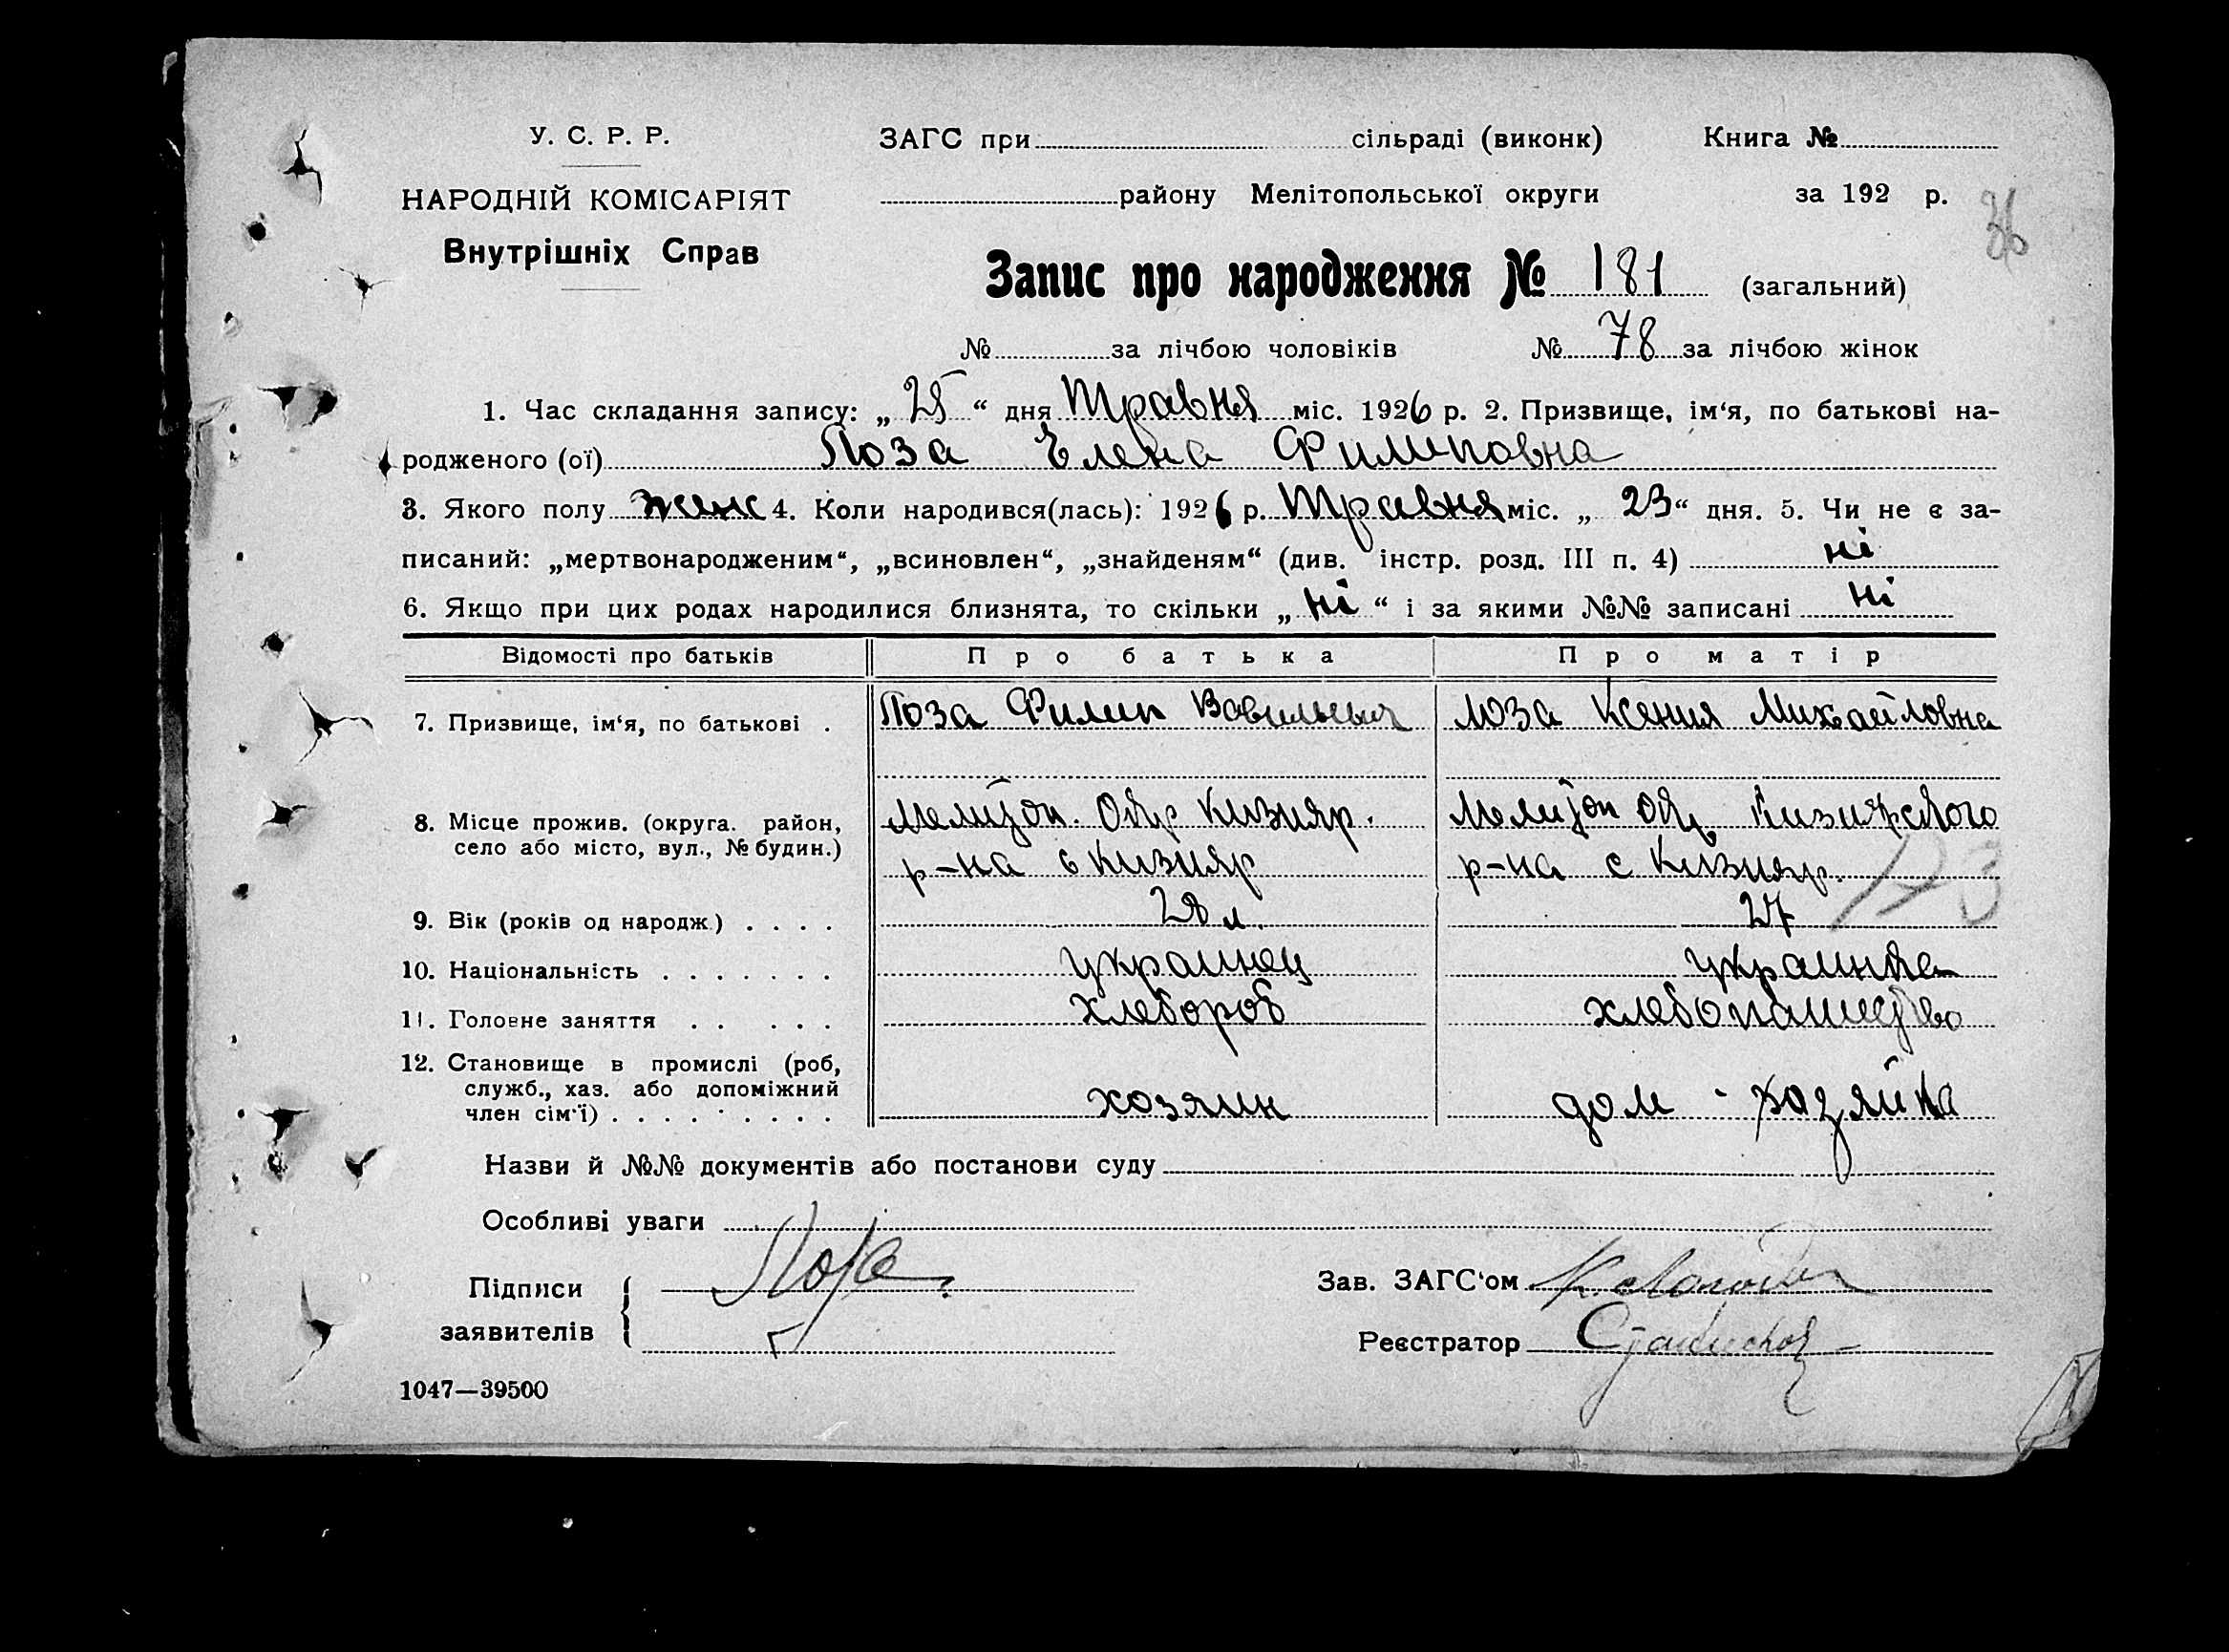 У. С. Р. Р.
НАРОДНІЙ КОМІСАРІЯТ
Внутрішніх Справ
ЗАГС при сільраді (виконк) Книга №
району Мелітопольської округи за 192 р.
36
Запис про народження № 181 (загальний)
№ за лічбою чоловіків № 78 за лічбою жінок
1. Час складання запису: „25“ дня Травня міс. 1926 р. 2. Призвище, ім‘я, по батькові на-
родженого (ої) Лоза Елена Филиповна
3. Якого полу женс 4. Коли народився(лась): 1926 р. Травня міс. „23“ дня. 5. Чи не є за-
писаний: „мертвонародженим“, „всиновлен“, „знайденям“ (див. інстр. розд. III п. 4) ні
6. Якщо при цих родах народилися близнята, то скільки „ні“ і за якими №№ записані ні
Відомості про батьків Про батька Про матір
7. Призвище, ім‘я, по батькові . Лоза Филип Вавильевич Лоза Ксения Михайловна
8. Місце прожив. (округа. район, Мелитоп. Окр Кизияр. Мелитоп Окр Кизиярского
село або місто, вул., № будин.) р-на с Кизияр р-на с Кизияр.
9. Вік (років од народж.) . . . . 28 л. 27
10. Національність . . . . . . . украинец украинка
11. Головне заняття . . . . . хлебороб хлебопашество
12. Становище в промислі (роб,
служб., хаз. або допоміжний
член сім‘ї) . . . . . . . . хозяин дом - хазяйка
Назви й №№ документів або постанови суду
Особливі уваги
Підписи Лоза Зав. ЗАГС‘ом
заявителів Реєстратор
1047—39500